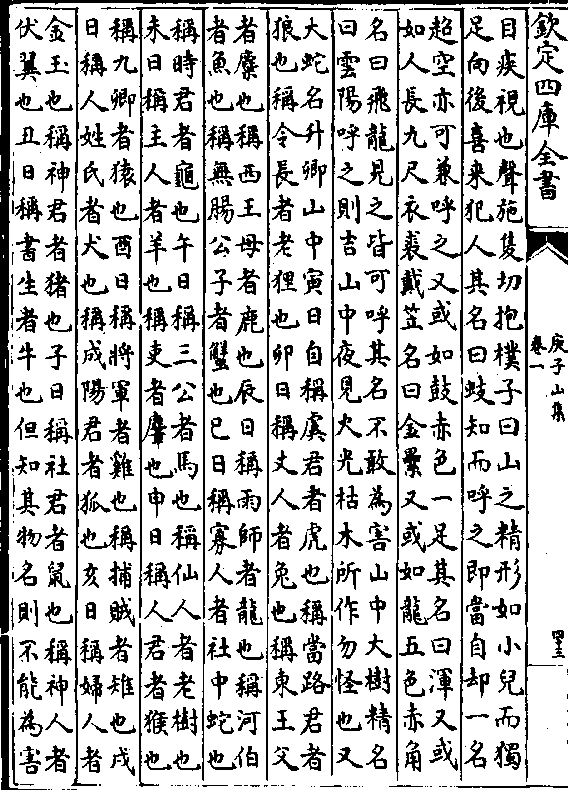 欽定四庫全書
目疾視也聲施隻切抱樸子曰山之精形如小兒而獨
足向後喜來犯人其名曰蚑知而呼之即當自却一名
超空亦可兼呼之又或如鼓赤色一足其名曰渾又或
如人長九尺衣裘戴笠名曰金纍又或如龍五色赤角
名曰飛龍見之皆可呼其名不敢為害山中大樹精名
曰雲陽呼之則吉山中夜見火光枯木所作勿怪也又
大蛇名升卿山中寅日自稱虞君者虎也稱當路君者
狼也稱令長者老狸也卯日稱丈人者兔也稱東王父
者麋也稱西王母者鹿也辰日稱雨師者龍也稱河伯
者魚也稱無腸公子者蟹也巳日稱寡人者社中蛇也
稱時君者龜也午日稱三公者馬也稱仙人者老樹也
未日稱主人者羊也稱吏者麞也申日稱人君者猴也
稱九卿者猿也酉日稱將軍者雞也稱捕賊者雉也戌
日稱人姓氏者犬也稱成陽君者狐也亥日稱婦人者
金玉也稱神君者猪也子日稱社君者鼠也稱神人者
伏翼也丑日稱書生者牛也但知其物名則不能為害
庾子山集
卷一
四三